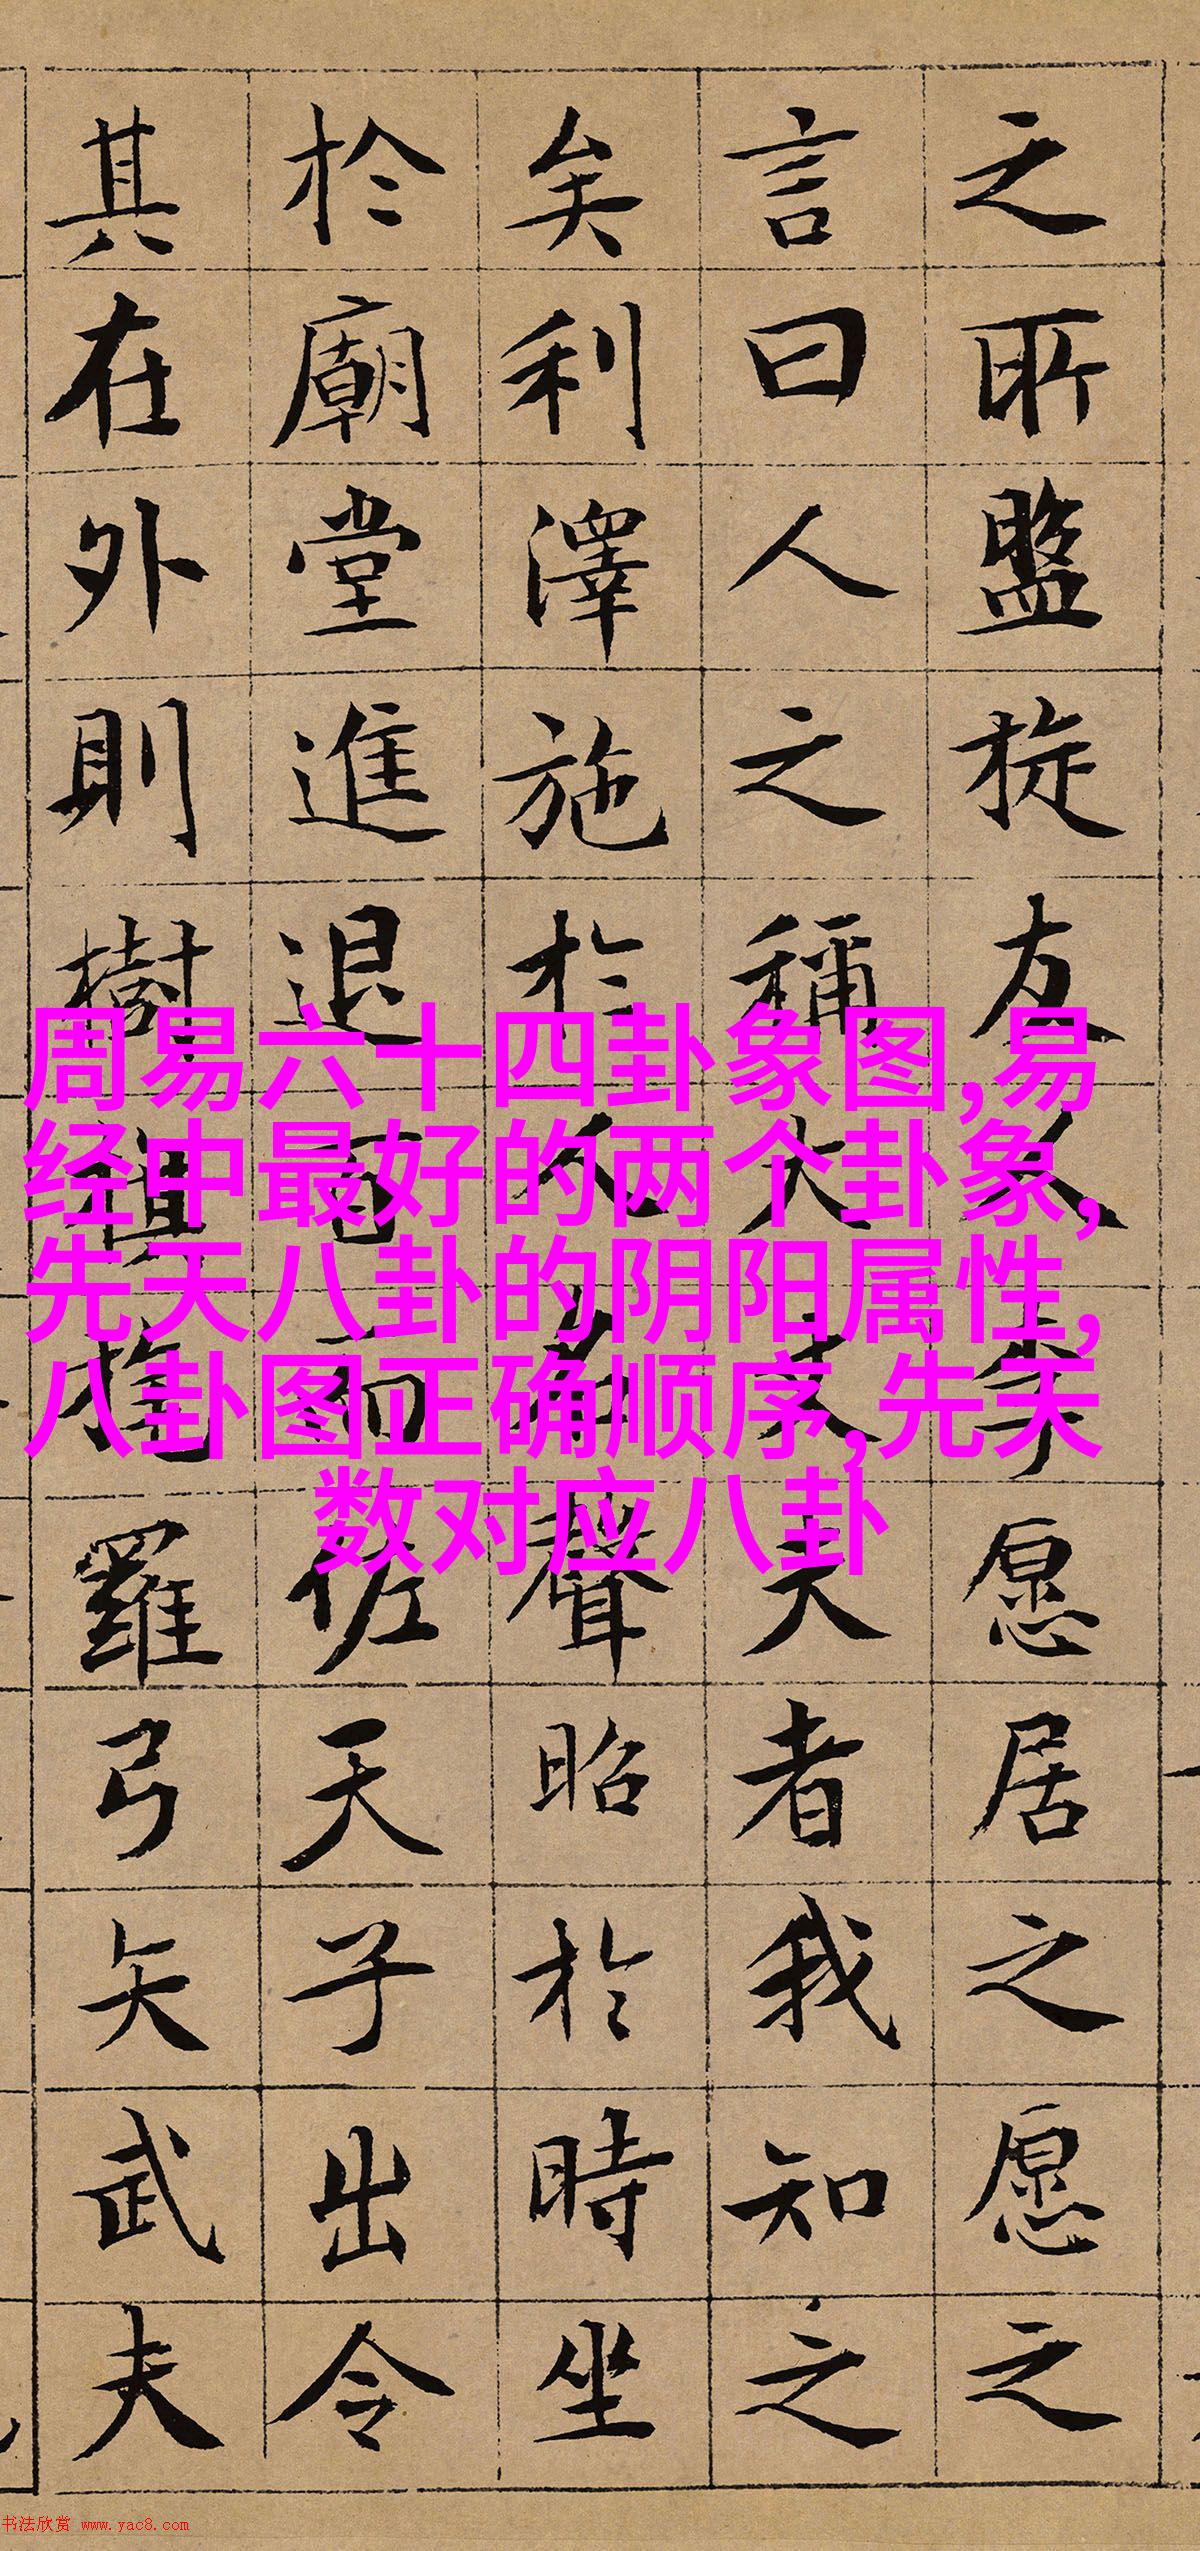 之所盤旋友人李愿居之愿之
言曰人之稱大丈夫者我知之
矣利澤施於人名聲昭於時坐
於廟堂進退百而佐天子出令
其在外則樹旗旄羅弓矢武夫
周易六十四卦象图,易
经中最好的两个卦象,
先天八卦的阴阳属性,
八卦图正确顺序,先天
数对应八卦
书法欣赏 www.yac8.com